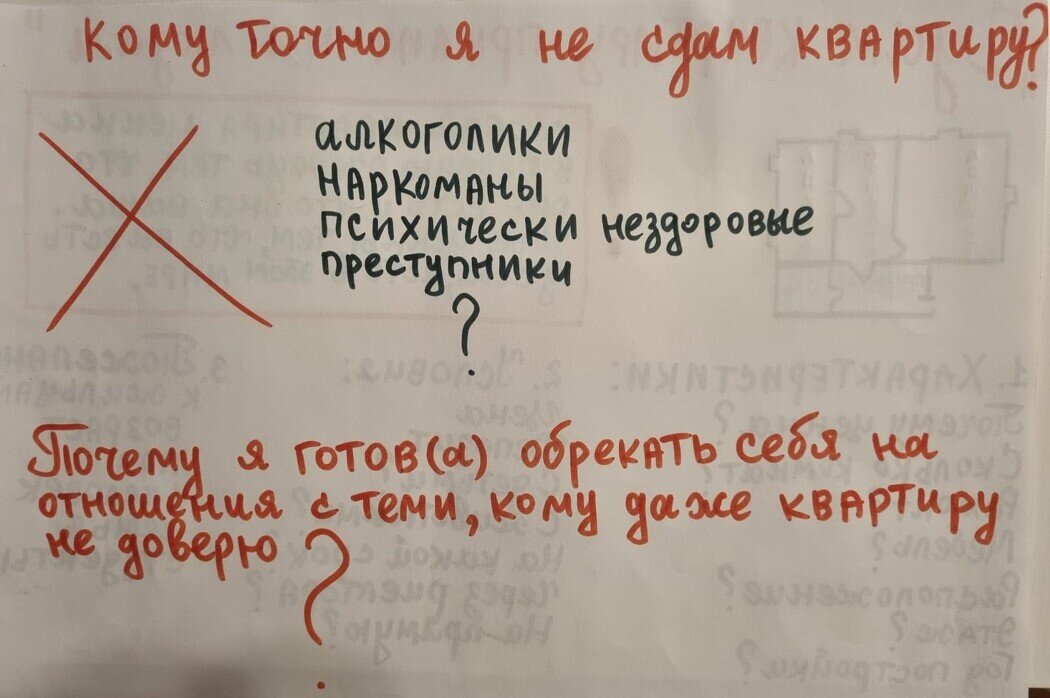 Кому точно я не сдам квартиру?
алкоголики
наркоманы
психически нездоровые
преступники
?
Почему я готов(а) обрекать себя на
отношения с теми, кому даже квартиру
не доверю ?